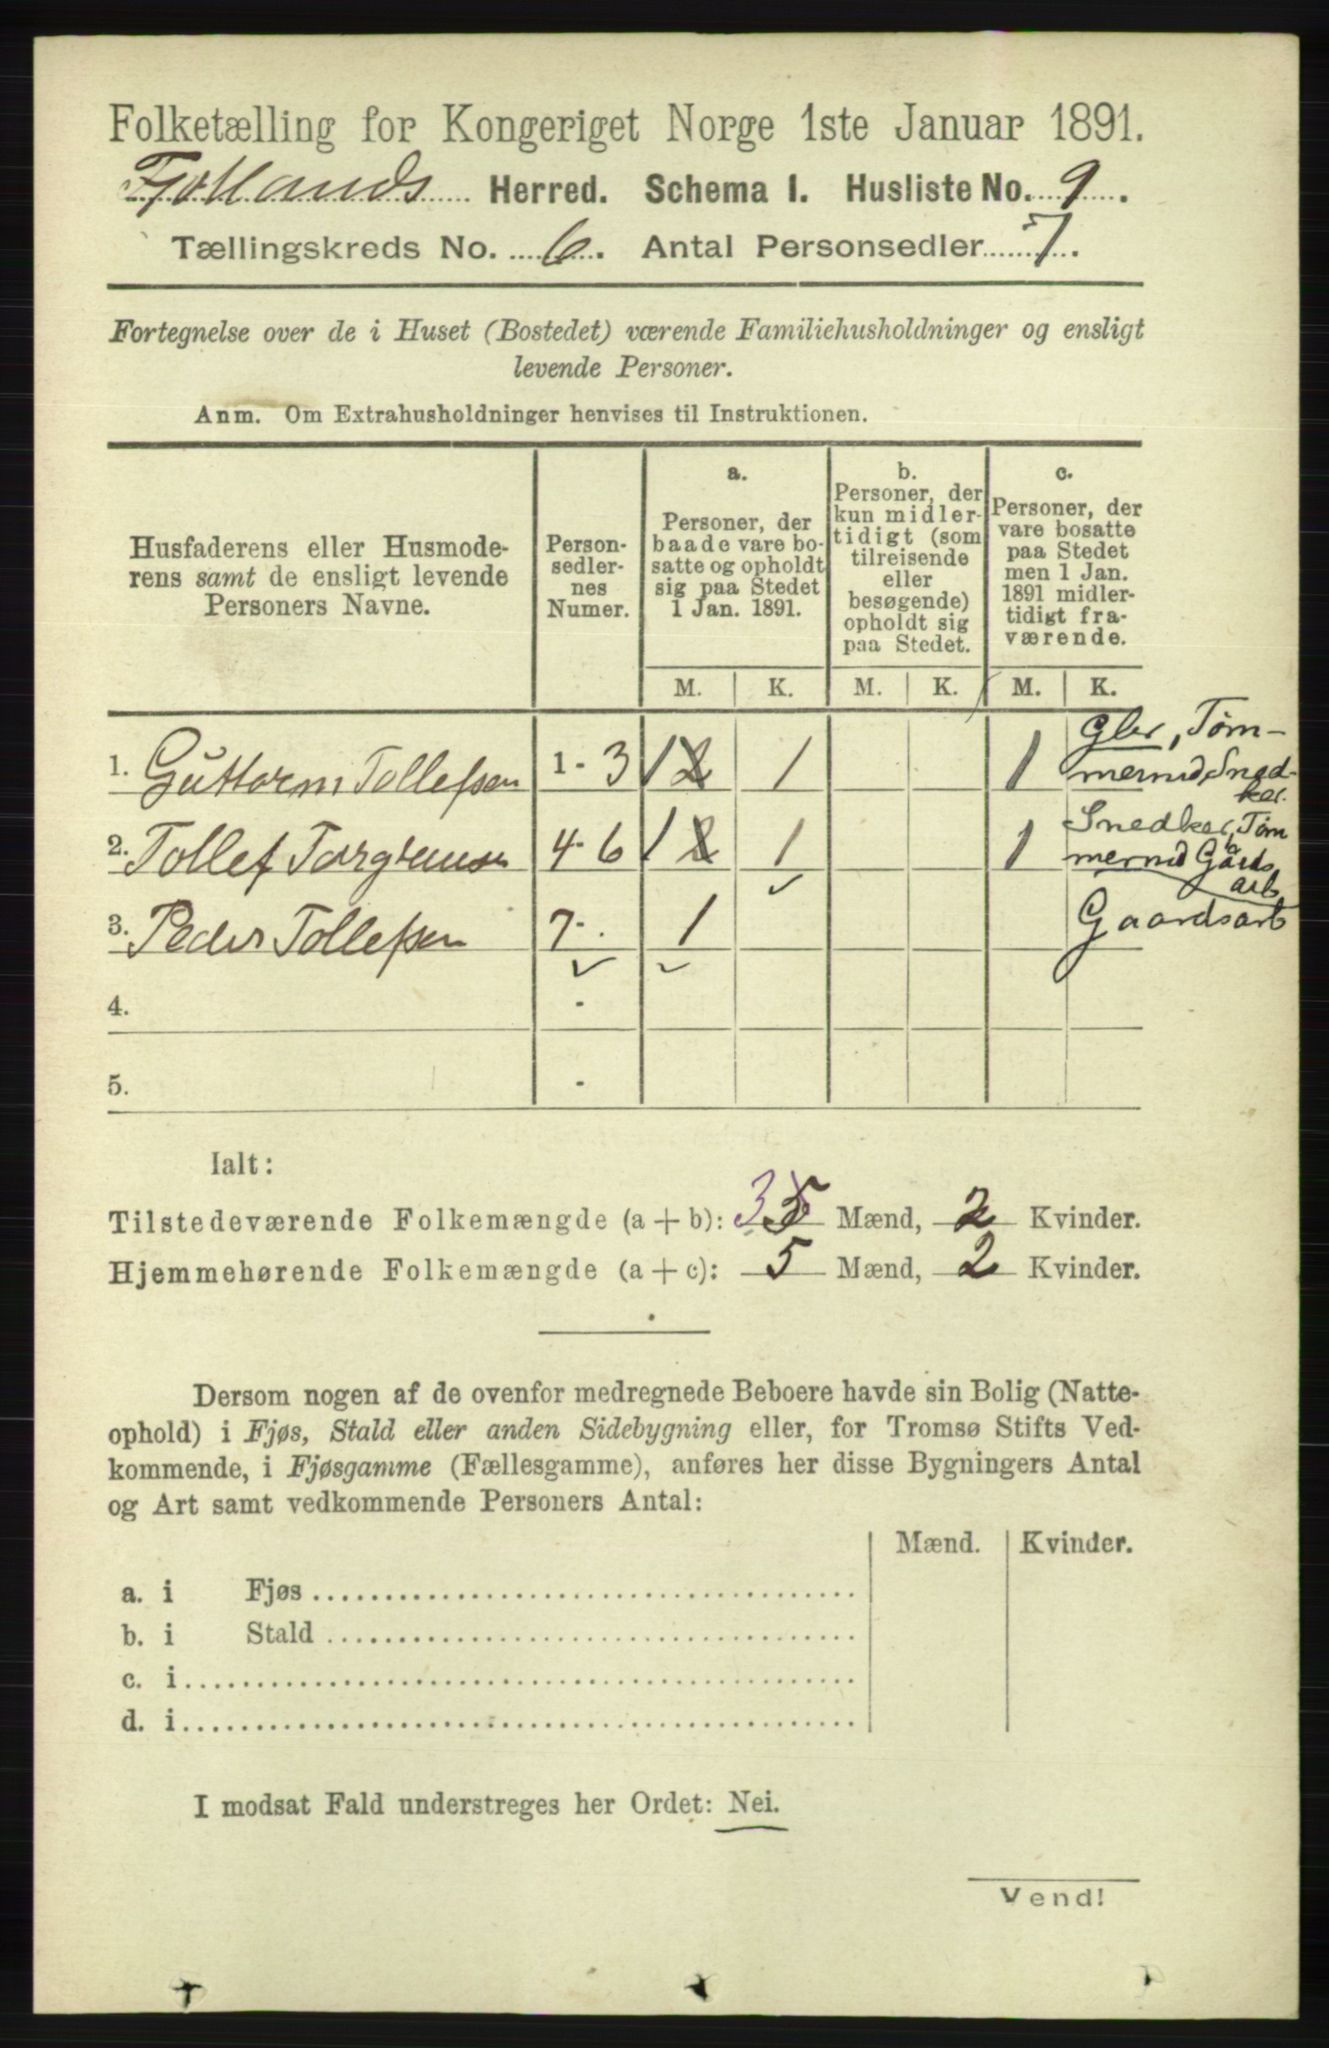 Folketælling for Kongeriget Norge 1ste Januar 1891.
Fjotlands Herred. Schema I. Husliste No. 9.
Tællingskreds No. 6. Antal Personsedler 7.
Fortegnelse over de i Huset (Bostedet) værende Familiehusholdninger og ensligt
levende Personer.
Anm. Om Extrahusholdninger henvises til Instruktionen.
Husfaderens eller Husmode-
rens samt de ensligt levende
Personers Navne.
Person-
sedler-
nes
Numer.
a.
Personer, der
baade vare bo-
satte og opholdt
sig paa Stedet
1 Jan. 1891.
b.
Personer, der
kun midler-
tidigt (som
tilreisende
eller
besøgende)
opholdt sig
paa Stedet.
c.
Personer, der
vare bosatte
paa Stedet
men 1 Jan.
1891 midler-
tidigt fra-
værende.
M. K. M. K. M. K.
1. Guttorm Tollefsen 1-3 1 2 1 1 Gbr, Tøm-
mermd, Sned-
ker.
2. Tollef Torgrimsen 4-6 1 2 1 1 Snedker, Tøm
mermd Gaards
arb
3. Peder Tollefsen 7-. 1 Gaardsarb
4. -
5. -
Ialt:
Tilstedeværende Folkemængde (a + b): 3 5 Mænd, 2 Kvinder.
Hjemmehørende Folkemængde (a + c): 5 Mænd, 2 Kvinder.
Dersom nogen af de ovenfor medregnede Beboere havde sin Bolig (Natte-
ophold) i Fjøs, Stald eller anden Sidebygning eller, for Tromsø Stifts Ved-
kommende, i Fjøsgamme (Fællesgamme), anføres her disse Bygningers Antal
og Art samt vedkommende Personers Antal:
Mænd. Kvinder.
a. i Fjøs
b. i Stald
c. i
d. i
I modsat Fald understreges her Ordet: Nei.
Vend!